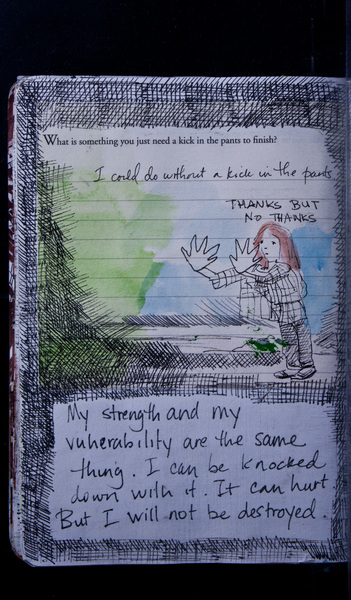 What is something you just need a kick in the pants to finish?
I could do without a kick in the pants
THANKS BUT
NO THANKS
My strength and my
vulnerability are the same
thing. I can be knocked
down with it. It can hurt.
But I will not be destroyed.